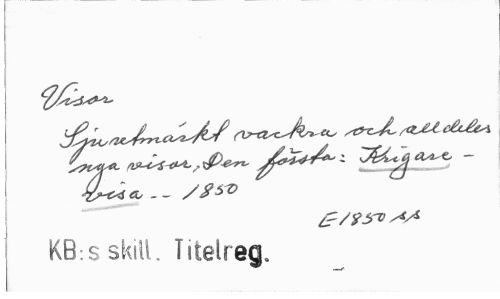 Visor
Sju utmärkt vackra och alldeles
nya visor, Den första: Krigare-
visa -- 1850
E1850 ss
KB:s skill. Titelreg.